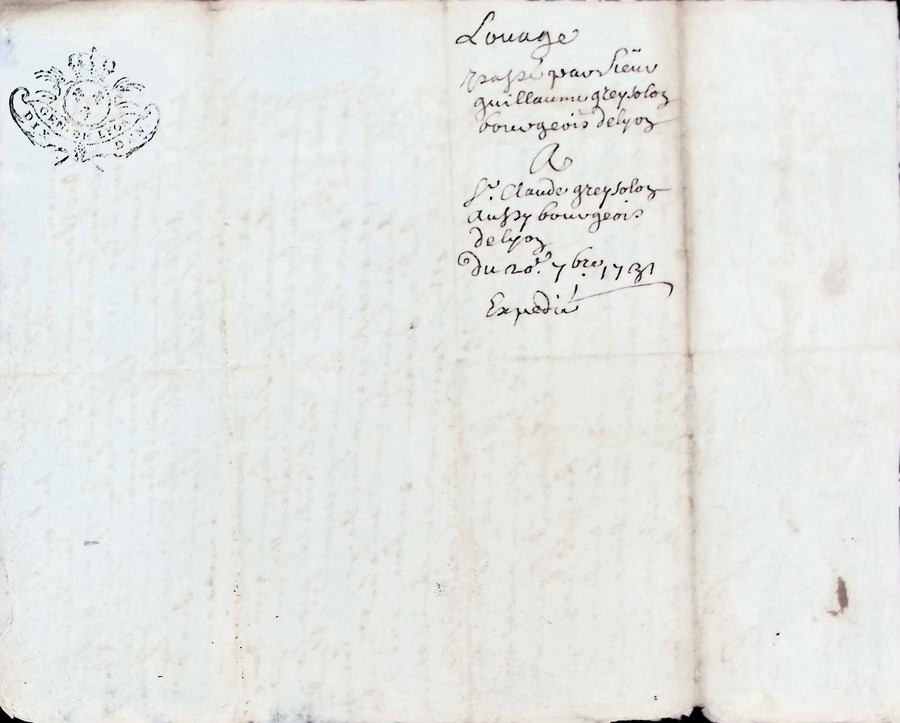 GEN. DE LYON
DIX D.
Louage
passé par Sieur
guillaume greysolon
bourgeois de lyon
A
Sr. Claude greysolon
aussy bourgeois
de lyon
du 20e. 7bre. 1731
Expedié